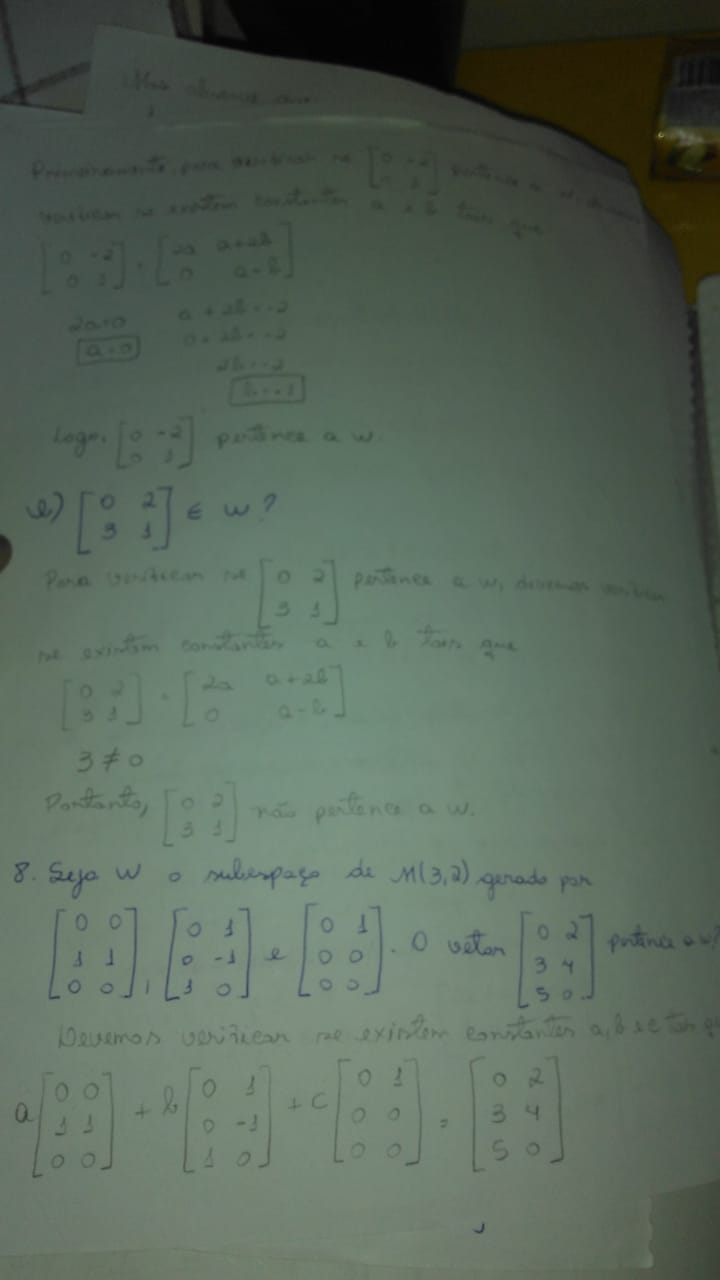 Primeiramente, para verificar se [0 -2
0 1] pertence a W,
verificar se existem constantes a e b tais que
[0 -2
0 1] = [2a a+2b
0 a-b]
2a=0 a+2b=-2
a=0 0+2b=-2
2b=-2
b=-1
Logo, [0 -2
0 1] pertence a W.
b) [0 2
3 1] ∈ W?
Para verificar se [0 2
3 1] pertence a W, devemos verificar
se existem constantes a e b tais que
[0 2
3 1] = [2a a+2b
0 a-b]
3 ≠ 0
Portanto, [0 2
3 1] não pertence a W.
8. Seja W o subespaço de M(3,2) gerado por
[0 0
1 1
0 0], [0 1
0 -1
1 0] e [0 1
0 0
0 0]. O vetor [0 2
3 4
5 0] pertence a W?
Devemos verificar se existem constantes a, b e c tais
a[0 0
1 1
0 0] + b[0 1
0 -1
1 0] + c[0 1
0 0
0 0] = [0 2
3 4
5 0]